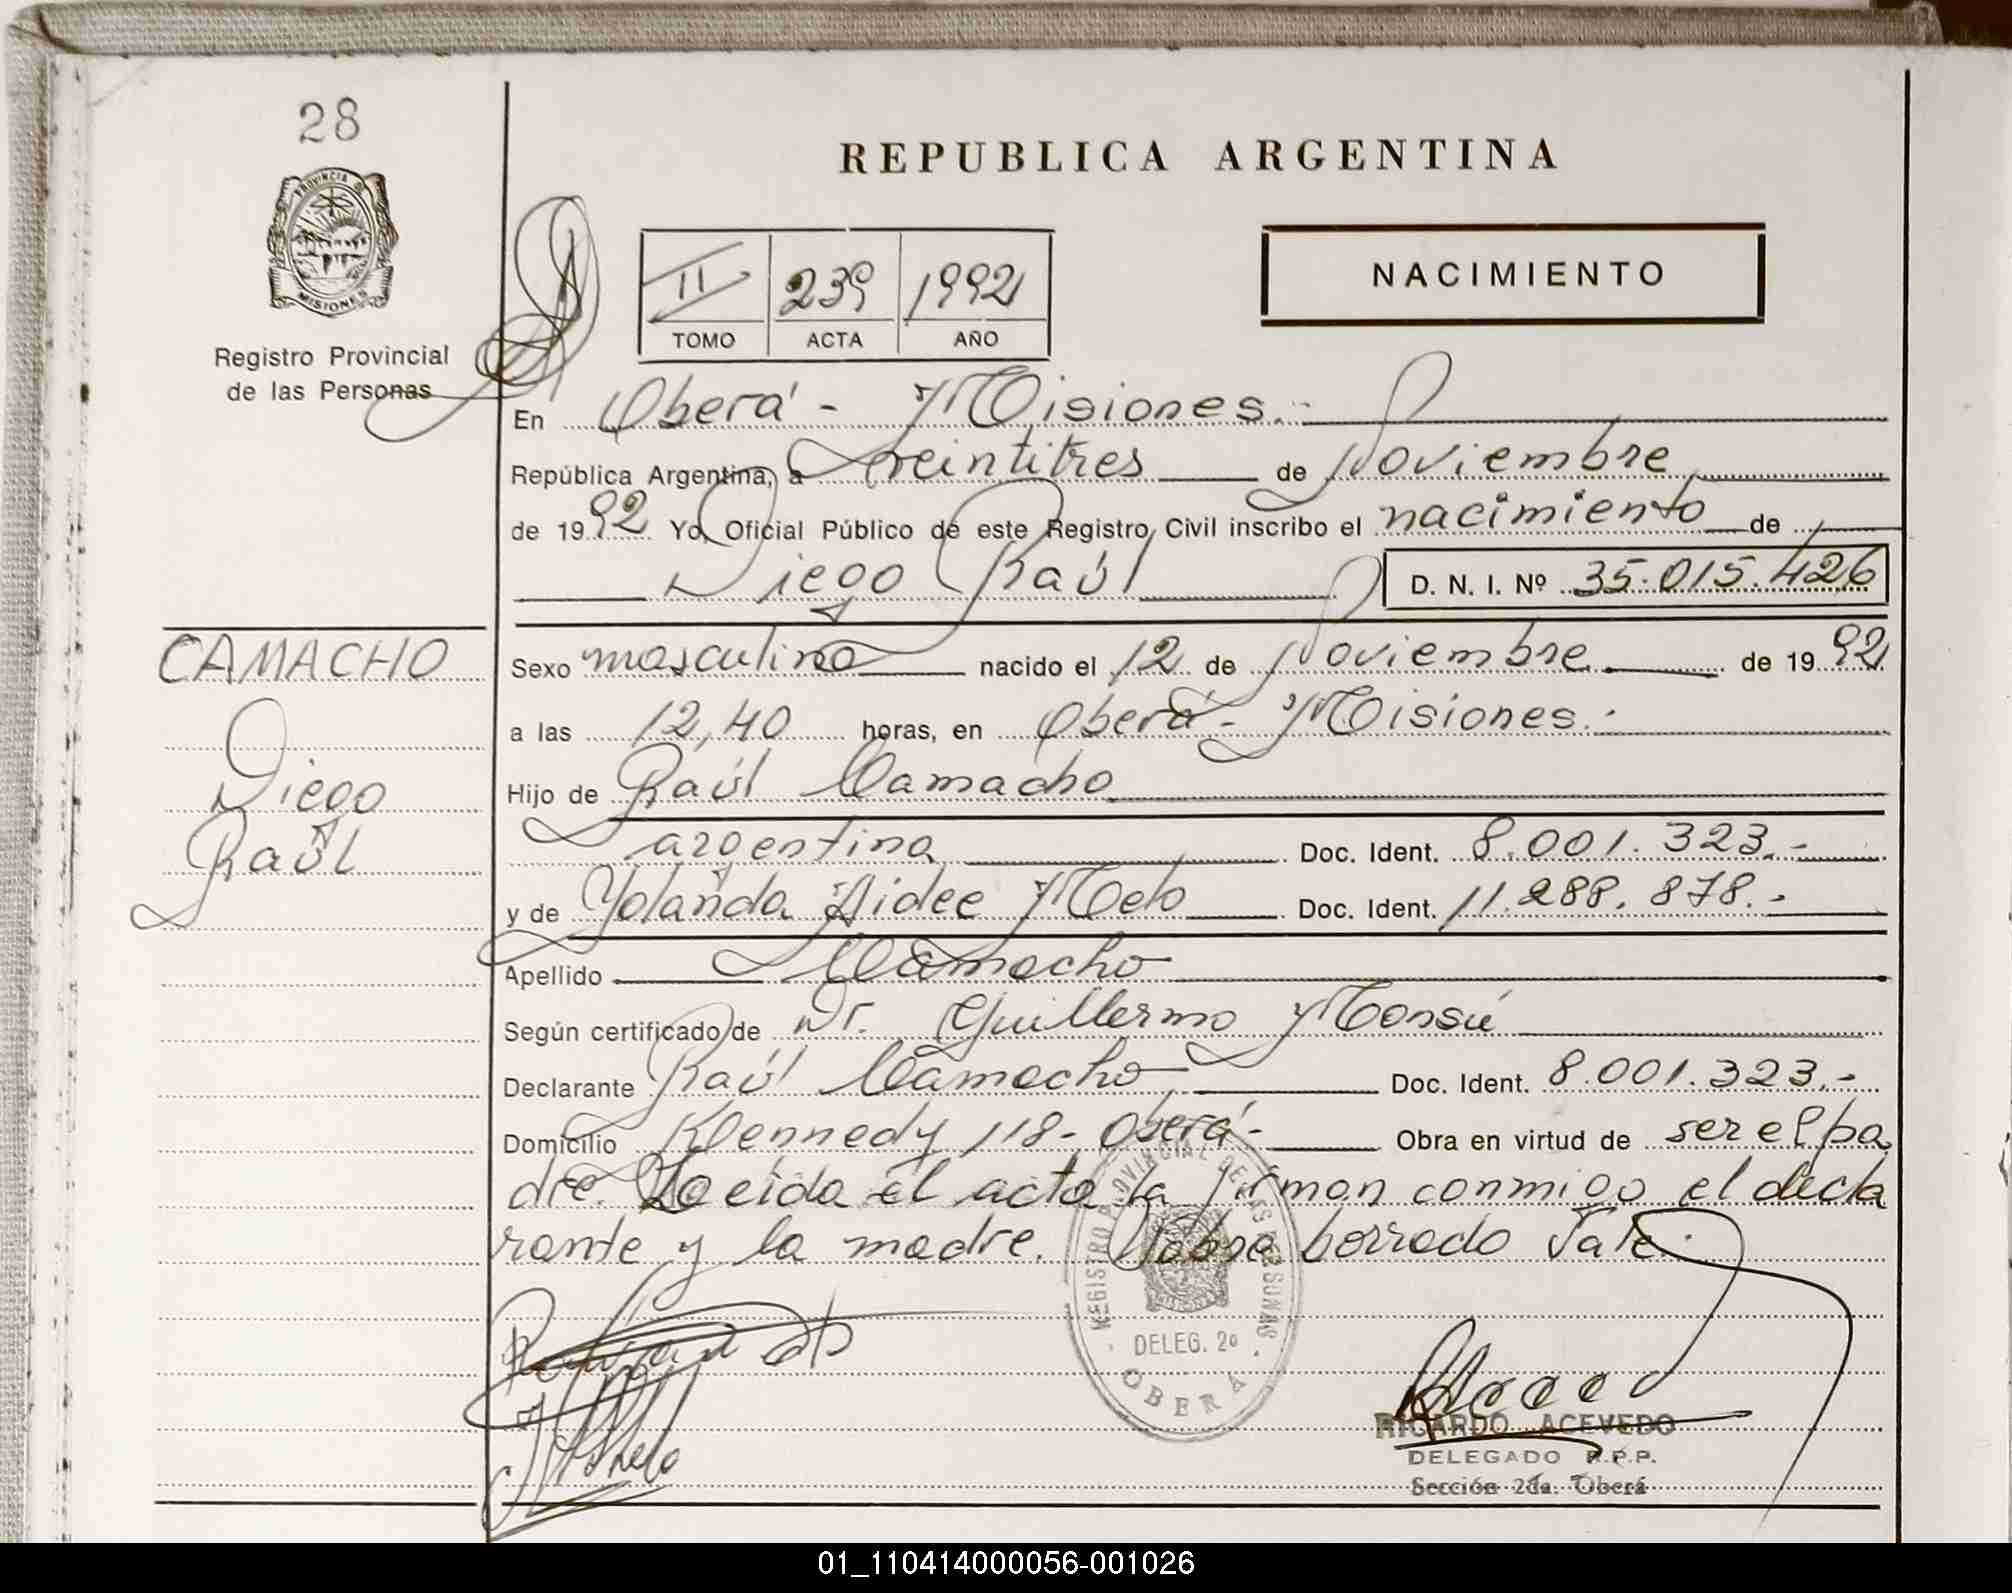 28
PROVINCIA DE
MISIONES
Registro Provincial
de las Personas
REPUBLICA ARGENTINA
II 239 1992
TOMO ACTA AÑO
NACIMIENTO
En Oberá - Misiones.-
República Argentina, a veintitres de Noviembre
de 1992 Yo, Oficial Público de este Registro Civil inscribo el nacimiento de
Diego Raúl D. N. I. Nº 35.015.426
CAMACHO
Diego
Raúl
Sexo masculino nacido el 12 de Noviembre de 1992
a las 12,40 horas, en Oberá - Misiones.-
Hijo de Raúl Camacho
argentino Doc. Ident. 8.001.323.-
y de Yolanda Aidee Melo Doc. Ident. 11.288.878.-
Apellido Camacho
Según certificado de Dr. Guillermo Monsú
Declarante Raúl Camacho Doc. Ident. 8.001.323.-
Domicilio Kennedy 118- Oberá- Obra en virtud de ser el pa
dre. Leida el acta la firman conmigo el decla
rante y la madre. Sobre borrado Vale.
REGISTRO PROVINCIAL DE LAS PERSONAS
DELEG. 2º
OBERA
RICARDO ACEVEDO
DELEGADO R.P.P.
Sección 2da. Oberá
01_110414000056-001026